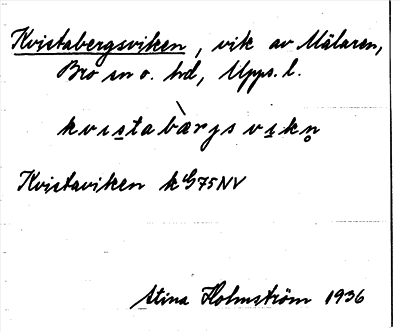 Kvistabergsviken, vik av Mälaren,
Bro sn o. hd, Upps. l.
kvistabàrgsvikn̥
Kvistaviken k G75NV
Stina Holmström 1936